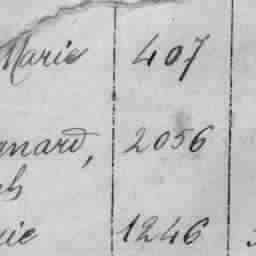 Marie 407
nard, 2056
1246